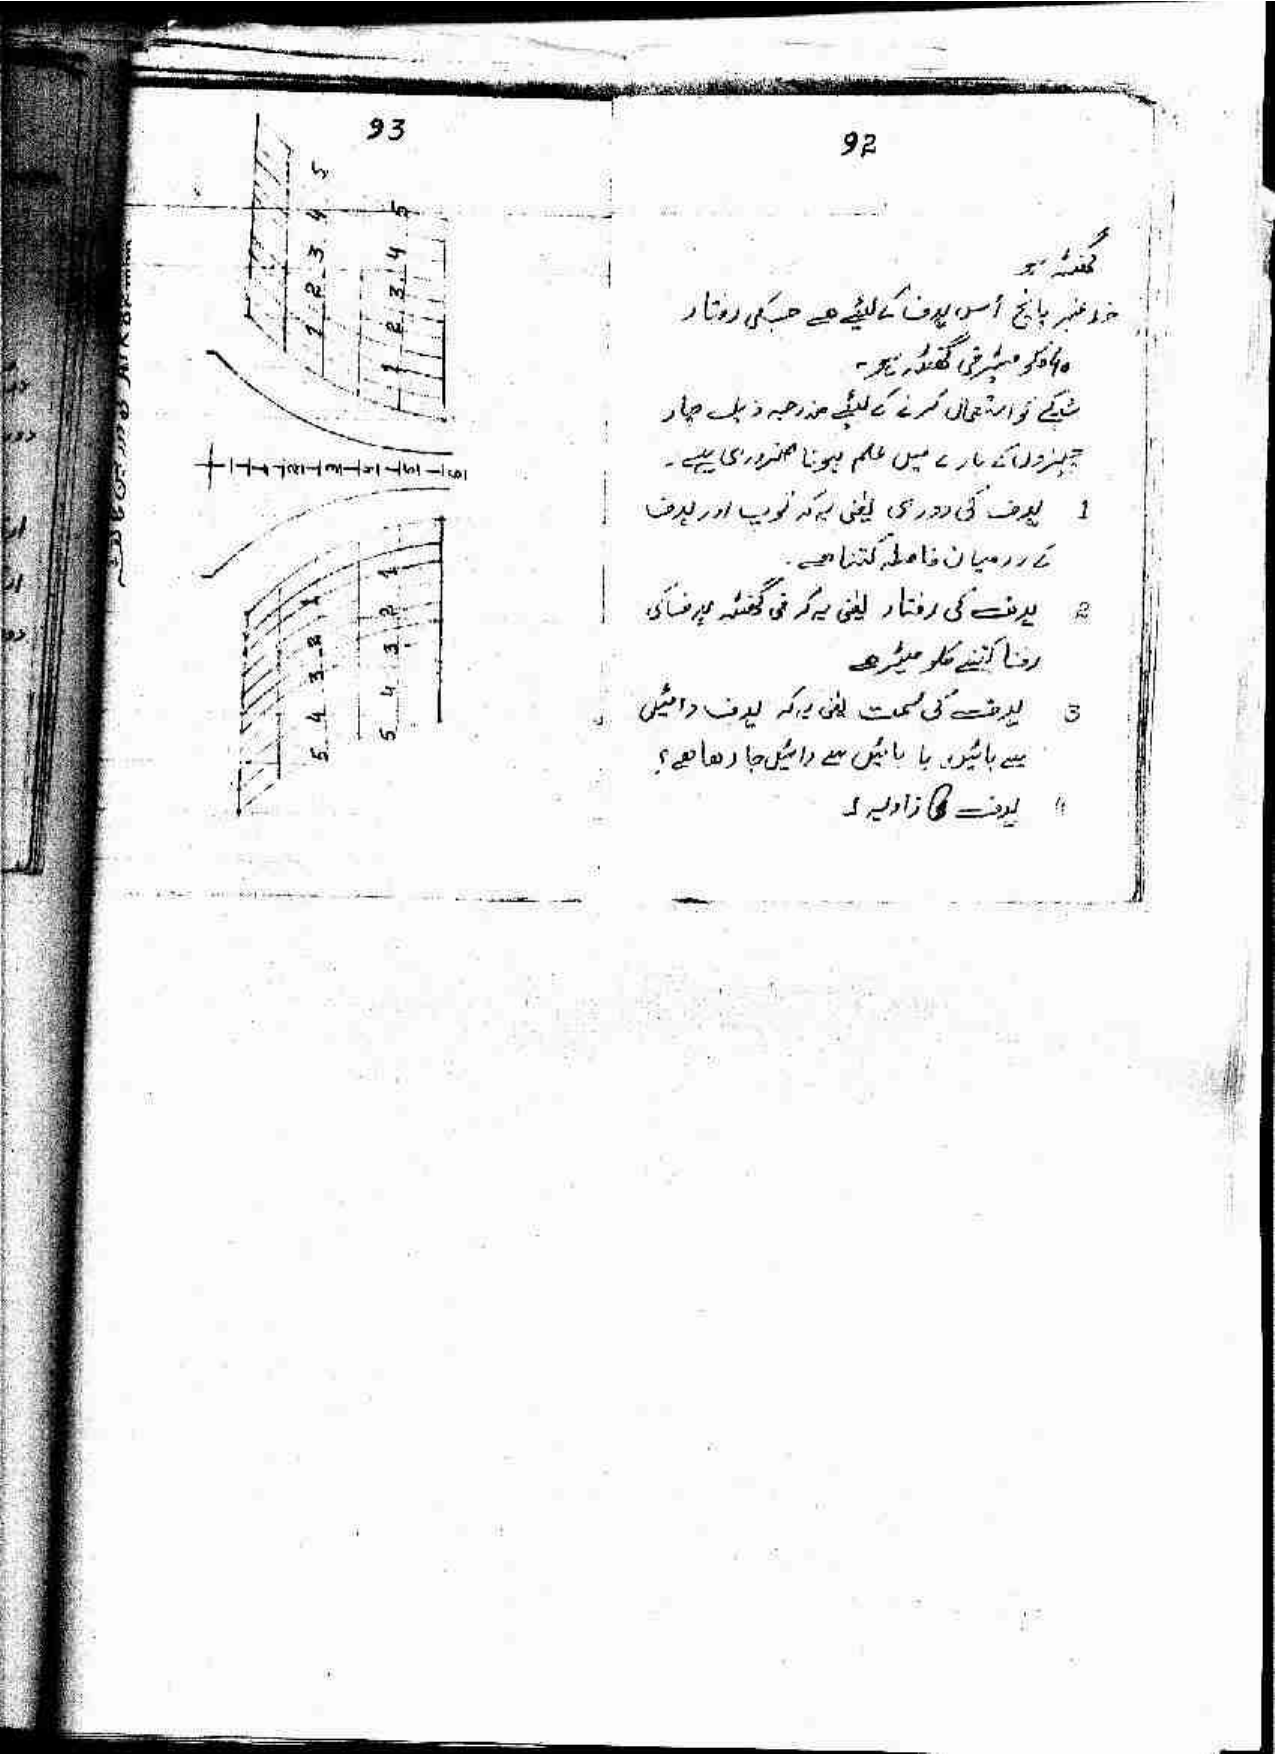 92
گھنٹہ ہو
خط نمبر پانچ اُس ہدف کے لیئے ھے جسکی رفتار
کلو میٹر فی گھنٹہ ہو۔
شبکے کو استعمال کرنے کے لیئے مندرجہ ذیل چار
چیزوں کے بارے میں علم ہونا ضروری ہے۔
1 ہدف کی دوری یعنی یہ کہ توپ اور ہدف
کے درمیان فاصلہ کتنا ھے۔
2 ہدف کی رفتار یعنی یہ کہ فی گھنٹہ ہدف کی
رفتار کتنے کلو میٹر ھے
3 ہدف کی سمت یعنی یہ کہ ہدف دائیں
سے بائیں یا بائیں سے دائیں جا رھا ھے؟
4 ہدف کا زاویہ
93
1 2 3 4 5
1 2 3 4 5
5 4 3 2 1
5 4 3 2 1